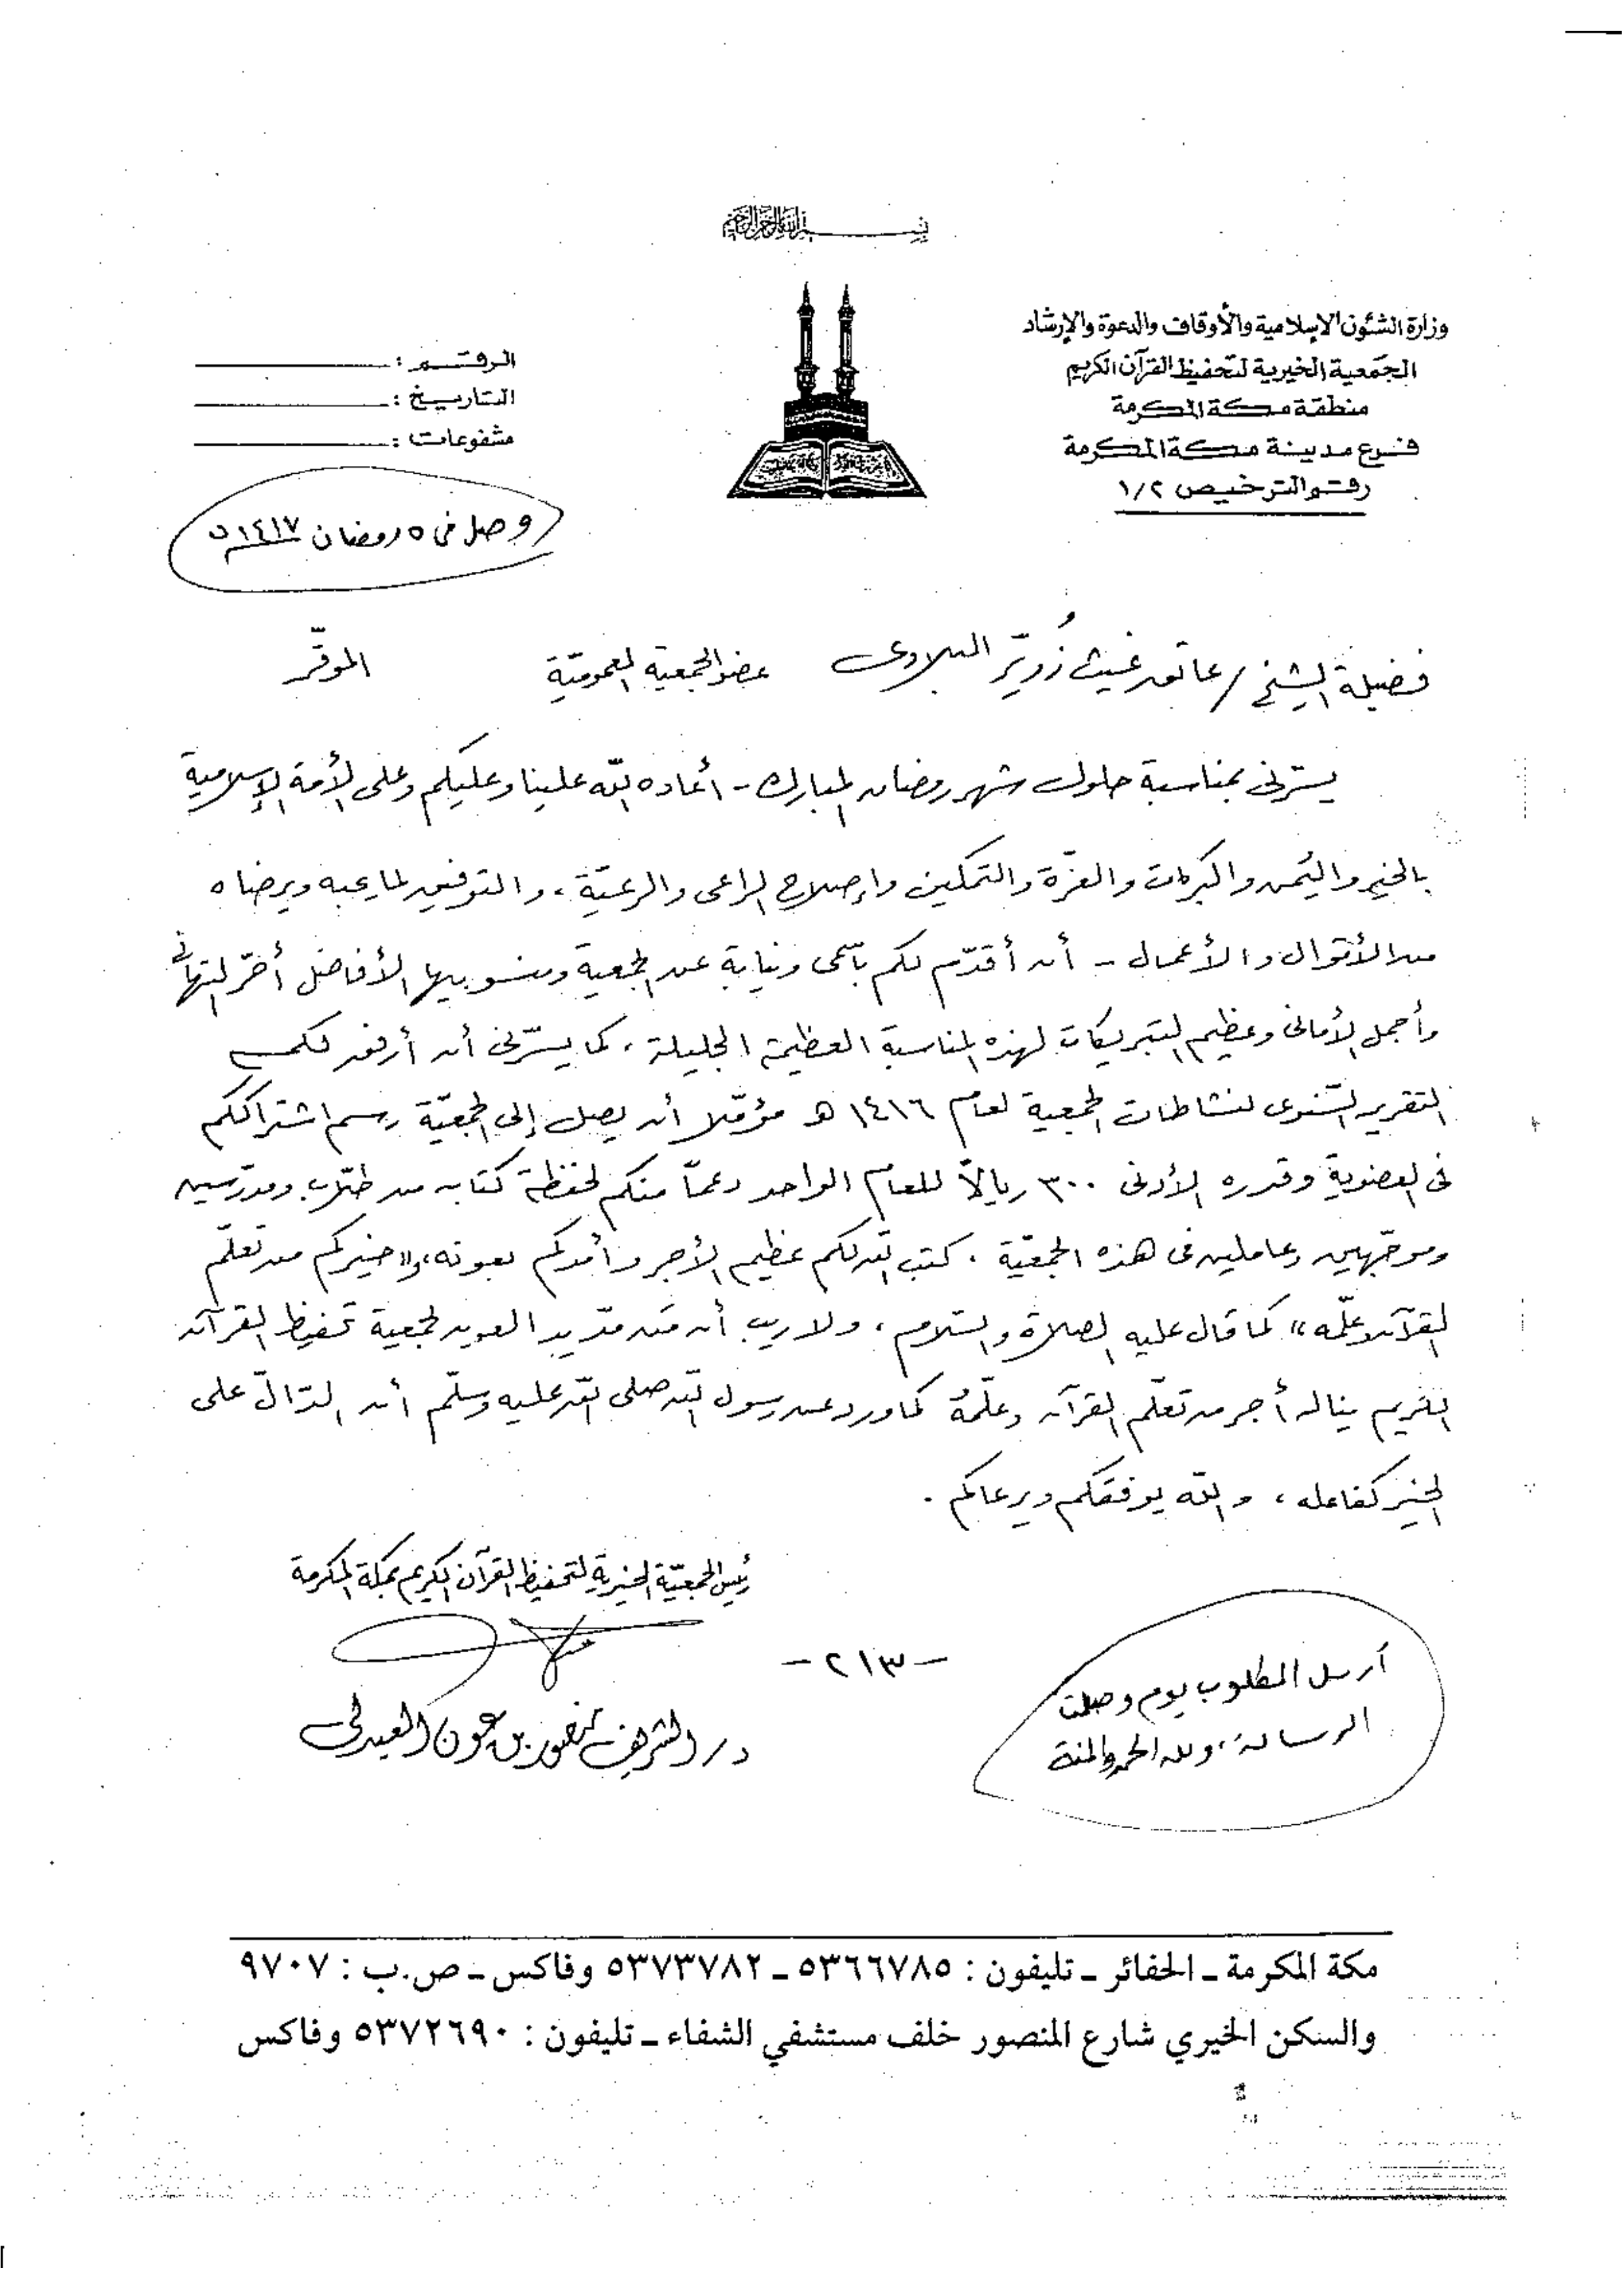 بسم الله الرحمن الرحيم
وزارة الشئون الإسلامية والأوقاف والدعوة والإرشاد
الجمعية الخيرية لتحفيظ القرآن الكريم
منطقة مكة المكرمة
فرع مدينة مكة المكرمة
رقم الترخيص ١/٢
الرقم :
التاريخ :
مشفوعات :
وصل في ٥ رمضان ١٤١٧هـ
فضيلة الشيخ / عاتق غيث زُويّر البلادي عضو الجمعية العموميّة الموقّر
يسرّني بمناسبة حلول شهر رمضان المبارك - أعاده الله علينا وعليكم وعلى الأمة الإسلامية
بالخير واليُمن والبركات والعزّة والتمكين وإصلاح الراعي والرعيّة، والتوفيق لما يحبه ويرضاه
من الأقوال والأعمال - أن أقدّم لكم باسمي ونيابة عن الجمعية ومنسوبيها الأفاضل أحرّ التهاني
وأجمل الأماني وعظيم التبريكات لهذه المناسبة العظيمة الجليلة، كما يسرّني أن أرفق لكم
التقرير السّنوي لنشاطات الجمعية لعام ١٤١٦ هـ مؤمّلا أن يصل إلى الجمعيّة رسم اشتراككم
في العضوية وقدره الأدنى ٣٠٠ ريالاً للعام الواحد دعماً منكم لحفظة كتابه من طلّاب ومدرّسين
وموجّهين وعاملين في هذه الجمعيّة. كتب الله لكم عظيم الأجر وأمدكم بعونه، و«خيركم من تعلّم
القرآن وعلّمه» كما قال عليه الصلاة والسّلام، ولا ريب أن من مدّ يد العون لجمعية تحفيظ القرآن
الكريم ينال أجر من تعلّم القرآن وعلّمهُ كما ورد عن رسول الله صلى الله عليه وسلّم أن الدّالّ على
الخير كفاعله، والله يوفقكم ويرعاكم.
رئيس الجمعيّة الخيرية لتحفيظ القرآن الكريم بمكة المكرمة
د/ الشريف منصور بن عون العبدلي
- ٢١٣ -
أرسل المطلوب يوم وصلت
الرسالة، ولله الحمد والمنة
مكة المكرمة ـ الحفائر ـ تليفون : ٥٣٦٦٧٨٥ ـ ٥٣٧٣٧٨٢ وفاكس ـ ص.ب : ٩٧٠٧
والسكن الخيري شارع المنصور خلف مستشفي الشفاء ـ تليفون : ٥٣٧٢٦٩٠ وفاكس